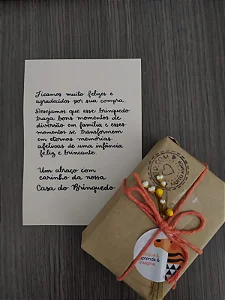 Ficamos muito felizes e
agradecidos por sua compra.
Desejamos que esse brinquedo
traga bons momentos de
diversão em família e esses
momentos se transformem
em eternas memórias
afetivas de uma infância
feliz e brincante.
Um abraço com
carinho da nossa
Casa do Brinquedo
aprende &